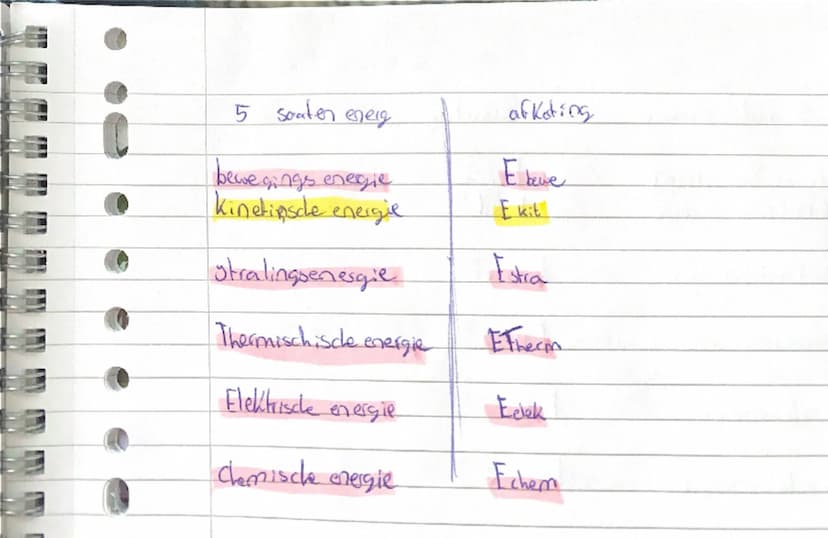 5 soorten energ afkoting
bewegings energie E bewe
kinetische energie E kit
stralingsenergie E stra
Thermischische energie ETherm
Elektrische energie Eelek
Chemische energie Echem